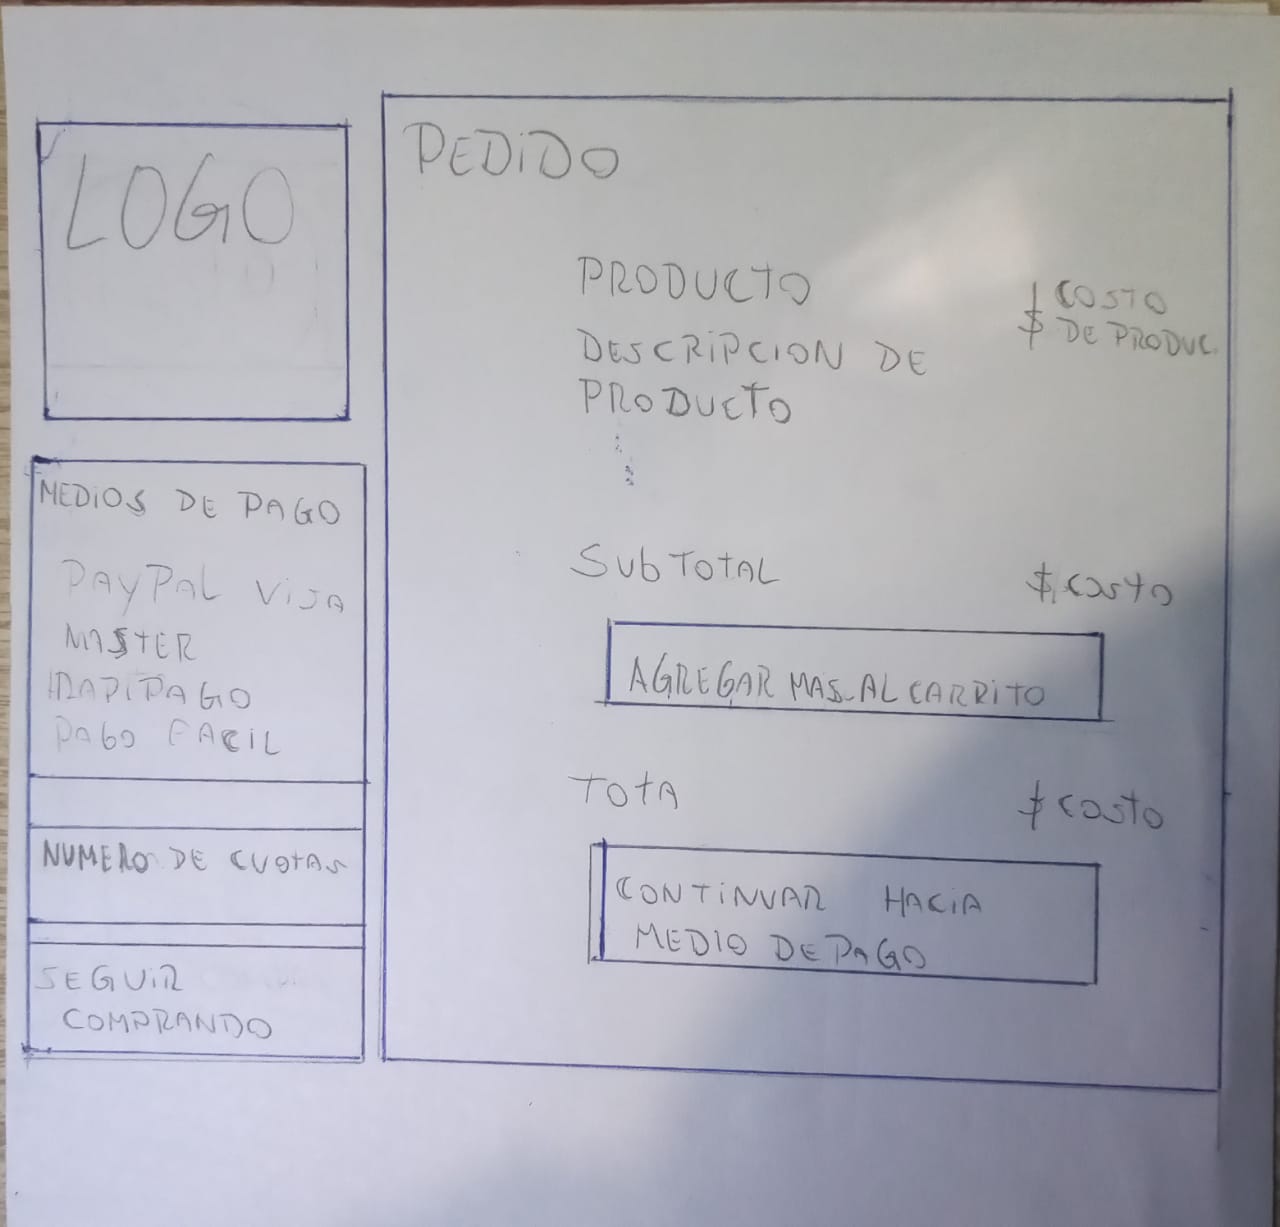 LOGO
MEDIOS DE PAGO
PAYPAL VISA
MASTER
RAPIPAGO
PAGO FACIL
NUMERO DE CUOTAS
SEGUIR
COMPRANDO
PEDIDO
PRODUCTO
$ COSTO
DE PRODUC.
DESCRIPCION DE
PRODUCTO
SUBTOTAL $ COSTO
AGREGAR MAS AL CARRITO
TOTA $ COSTO
CONTINUAR HACIA
MEDIO DE PAGO